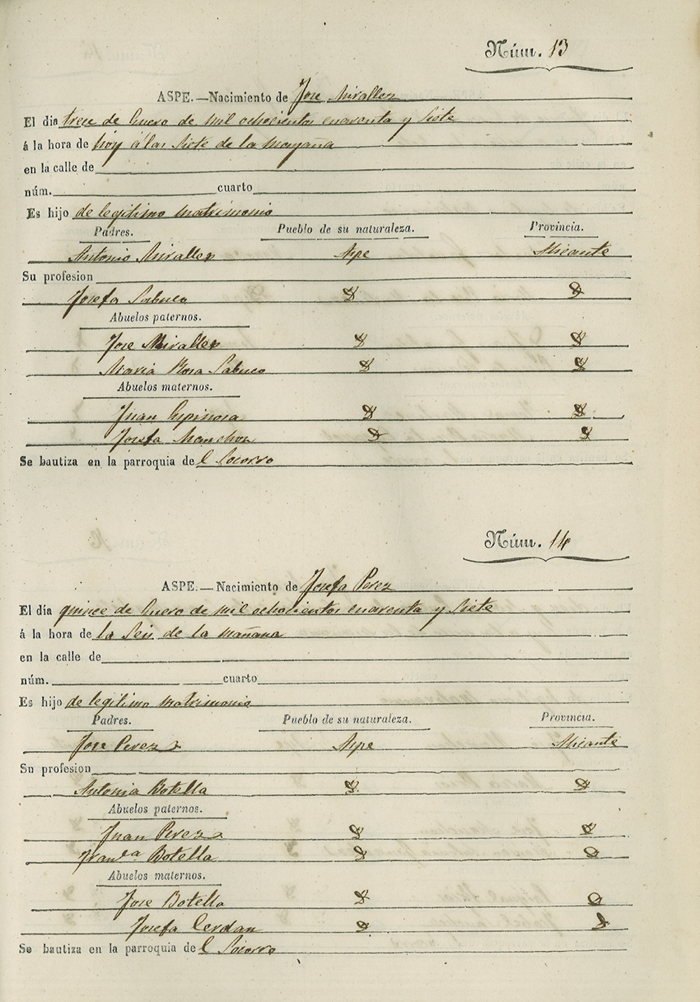 Núm. 13
ASPE.—Nacimiento de Jose Miralles
El dia trece de Enero de mil ochocientos cuarenta y siete
á la hora de hoy á las siete de la mayana
en la calle de
núm. cuarto
Es hijo de legitimo matrimonio
Padres. Pueblo de su naturaleza. Provincia.
Antonio Miralles Aspe Alicante
Su profesion
Josefa Sabuco
Abuelos paternos.
Jose Miralles
Maria Rosa Sabuco
Abuelos maternos.
Juan Espinosa
Josefa Manchon
Se bautiza en la parroquia del Socorro
Núm. 14
ASPE.—Nacimiento de Josefa Perez
El dia quince de Enero de mil ochocientos cuarenta y siete
á la hora de la seis de la mañana
en la calle de
núm. cuarto
Es hijo de legitimo matrimonio
Padres. Pueblo de su naturaleza. Provincia.
Jose Perez Aspe Alicante
Su profesion
Antonia Botella
Abuelos paternos.
Juan Perez
Franca Botella
Abuelos maternos.
Jose Botella
Josefa Cerdan
Se bautiza en la parroquia del Socorro